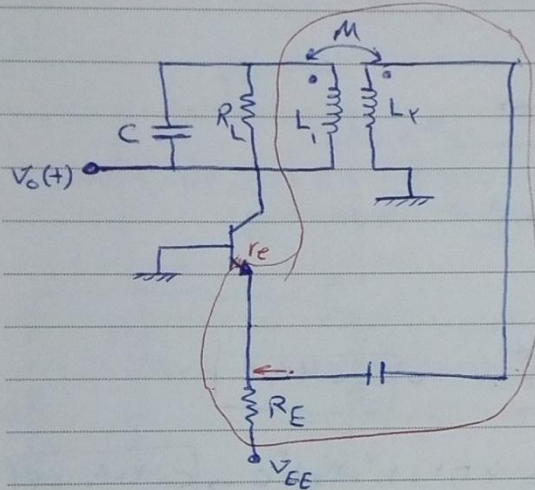 M
C
R_L
L_1
L_2
V_o(+)
r_e
R_E
V_EE